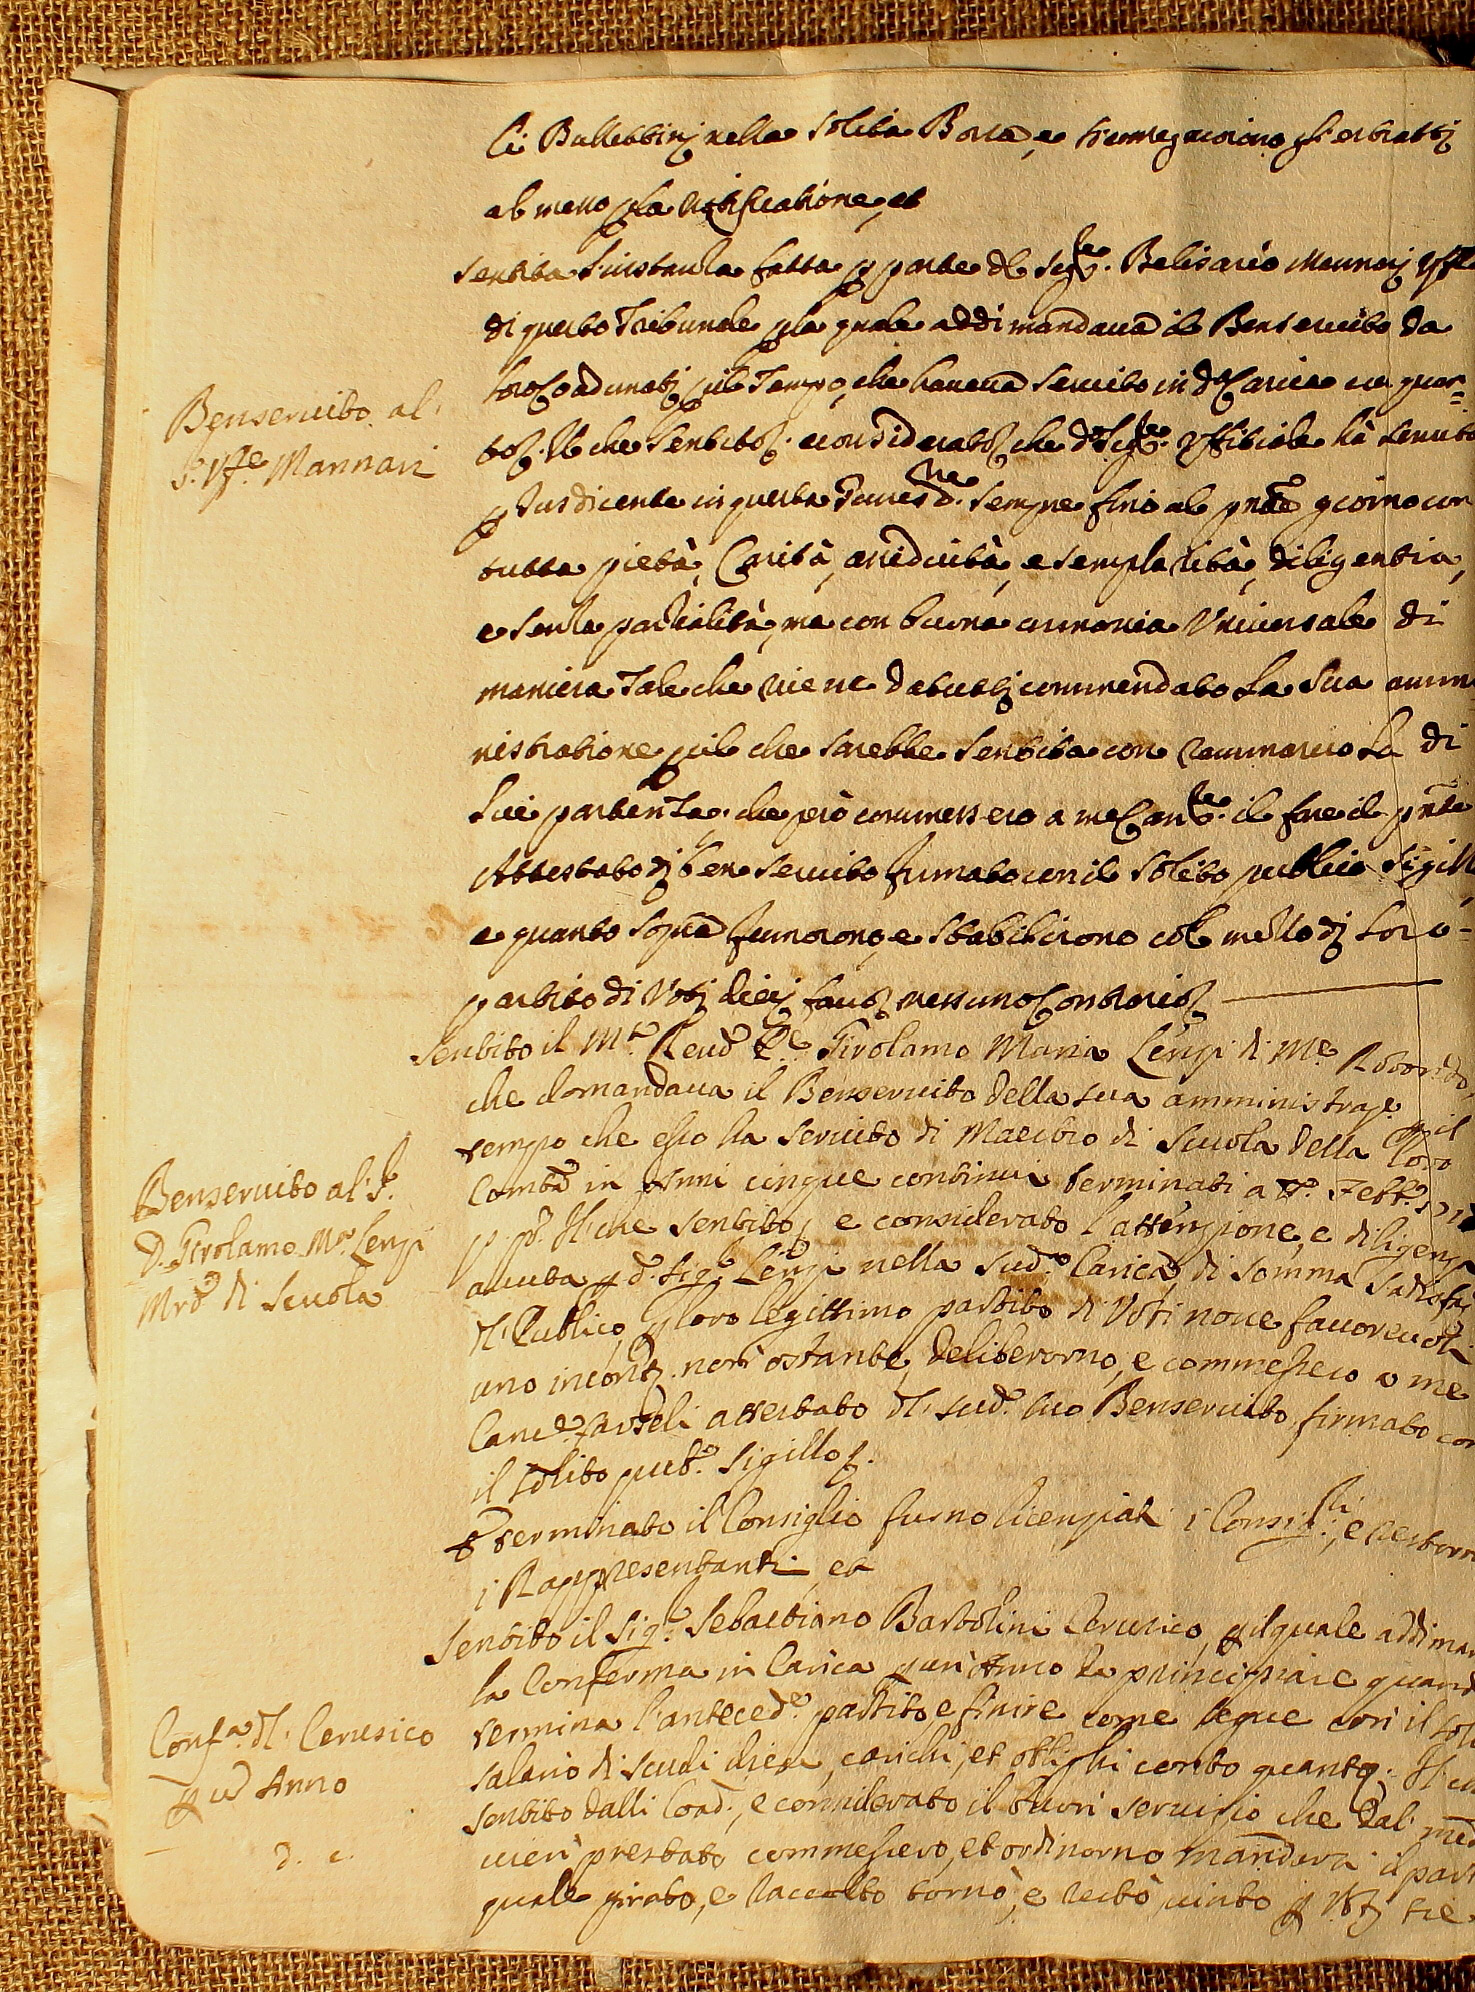 li Bullettini nella solita Borsa, e
al meno la notificatione, et
sentita l'instanza fatta p parte del Sig.re Belisario Mannari Uff.le
di questo Tribunale p la quale addimandaua il Benseruito da
loro Coadunati p il Tempo, che haueua seruito in d.a Carica
Benseruito al
S. Uff.e Mannari
Il che sentito, e considerato che d.o Sig.re Uffitiale hà tenuto
p Jusdicente in questa sempre fino al pnte giorno con
tutta pietà, Carità, assiduità, esemplarità, diligentia,
e senza partialità, ma con buona armonia Vniuersale di
maniera Tale che uiene da tutti commendato la sua ammi
nistratione p il che sarebbe sentita con rammarico la di
lui partenza. che però commessero a me Canc.re il fare il pnte
Attestato di ben seruito firmato con il solito publico Sigillo
e quanto sopra fermorono, e stabilirono col mezzo di loro
partito di Voti dieci fauor nessuno Contrario
Sentito il M.to Reud.o Girolamo Maria Lenzi di M.e
che domandaua il Benseruito della sua amministraz.e p il
tempo che esso ha seruito di Maestro di Scuola della loro
Benseruito al S.r
D. Girolamo M.a Lenzi
Mrõ di Scuola
Comtà in Anni cinque continui terminati a Febb.o
p. p.o Il che sentito, e considerato l'attenzione, e diligenza
auuta p d.o Sig.r Lenzi nella sud.a Carica, di somma sadisfaz
del Publico, p loro legittimo partito di Voti noue fauoreuoli
uno incont.o non ostante, deliberorno, e commessero a me
Canc.e farsoli attestato del sud.o suo Benseruito firmato con
il solito pub.o Sigillo
E terminato il Consiglio furno licenziati i Consig.li, e restorno
i Rappresentanti, et
Sentito il Sig.r Sebastiano Bartolini Cerusico, p il quale addiman
la Conferma in Carica p un'Anno da principiare quand
Conf.a del Cerusico
p un Anno
termina l'anteced.e partito, e finire come segue con il sol
salario di scudi dieci, carichi, et oblighi
sentito dalli Coad.i, e considerato il buon seruizio che dal med
uien prestato commessero, et ordinorno mandarsi il part
quale girato, e raccolto tornò, e restò uinto p Voti tre